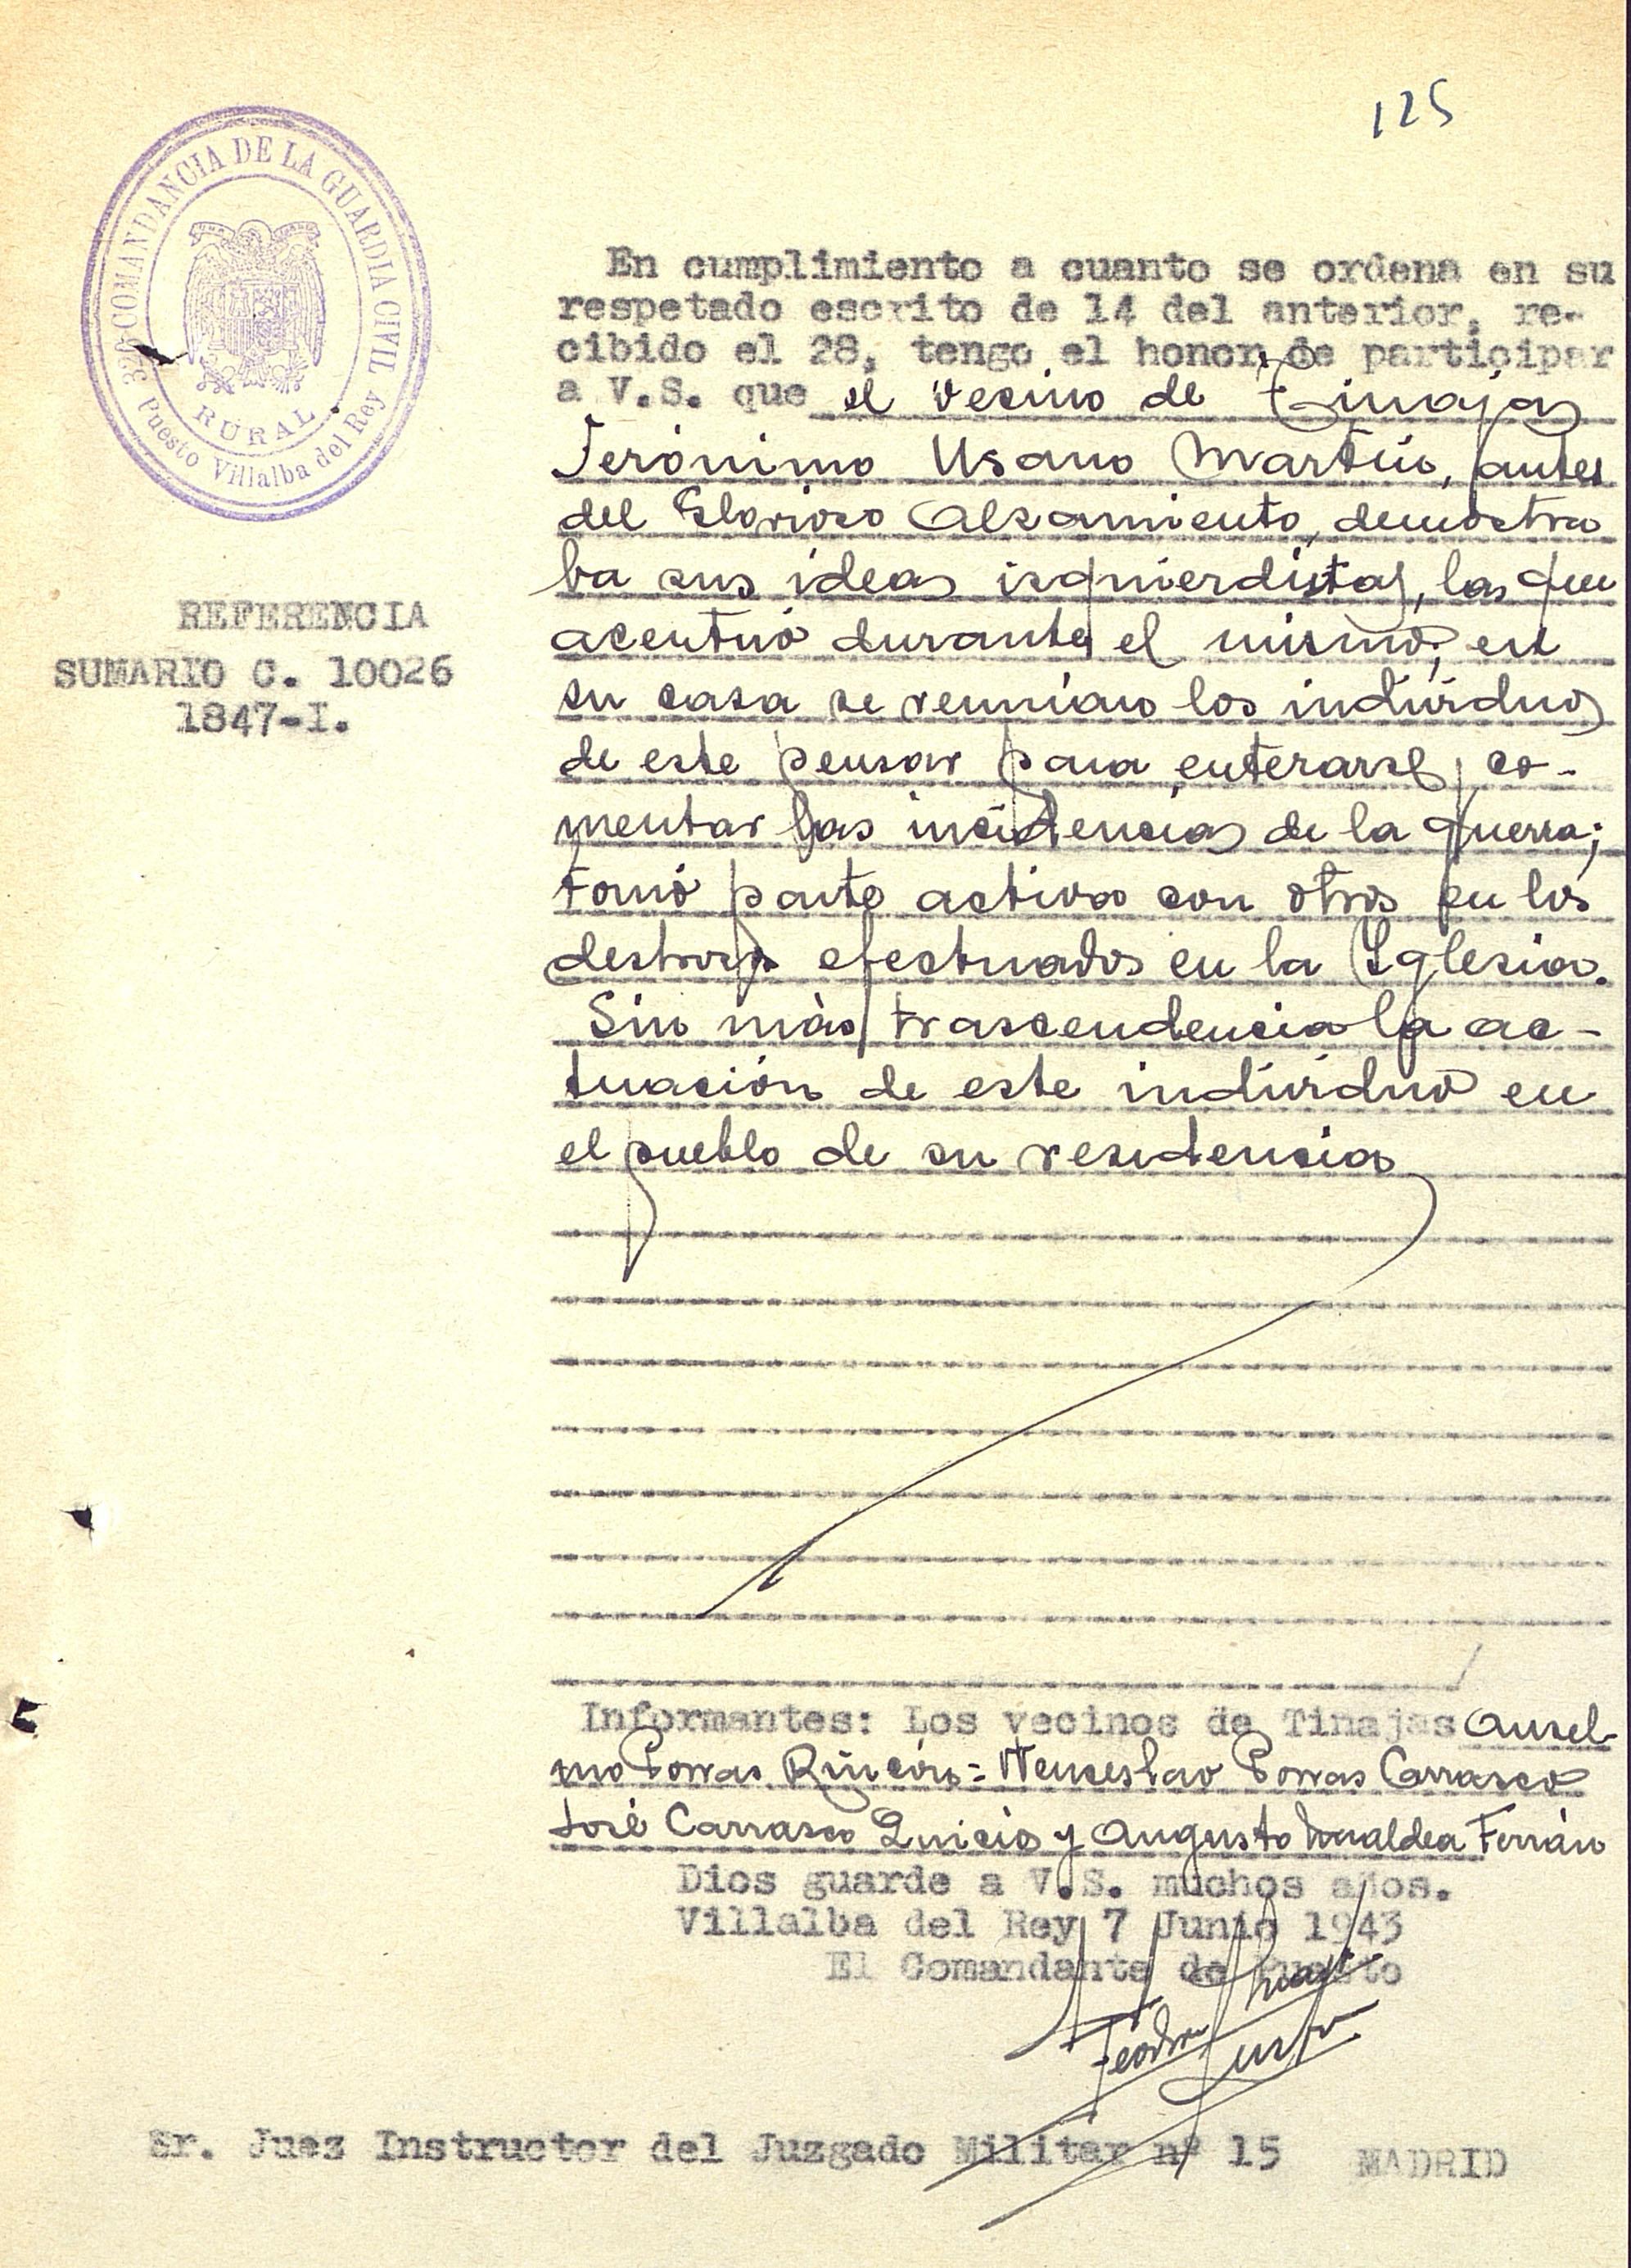 125
COMANDANCIA DE LA GUARDIA CIVIL
RURAL.
Puesto Villalba del Rey
En cumplimiento a cuanto se ordena en su
respetado escrito de 14 del anterior, re-
cibido el 28, tengo el honor de participar
a V.S. que el vecino de Tinajas
Jerónimo Usano Martín, antes
del Glorioso Alzamiento, demostra
ba sus ideas izquierdistas, las que
acentuó durante el mismo; en
su casa se reunian los individuos
de este pensar para enterarse y co-
mentar las incidencias de la guerra;
tomó parte activa con otros en los
destrozos efectuados en la Iglesia.
Sin más trascendencia la ac-
tuación de este individuo en
el pueblo de su residencia
REFERENCIA
SUMARIO C. 10026
1847-I.
Informantes: Los vecinos de Tinajas Ansel-
mo Porras Rincón = Wenceslao Porras Carrasco
José Carrasco y Augusto Ferrán
Dios guarde a V.S. muchos años.
Villalba del Rey 7 Junio 1943
El Comandante de Puesto
Justo
Sr. Juez Instructor del Juzgado Militar nº 15 MADRID